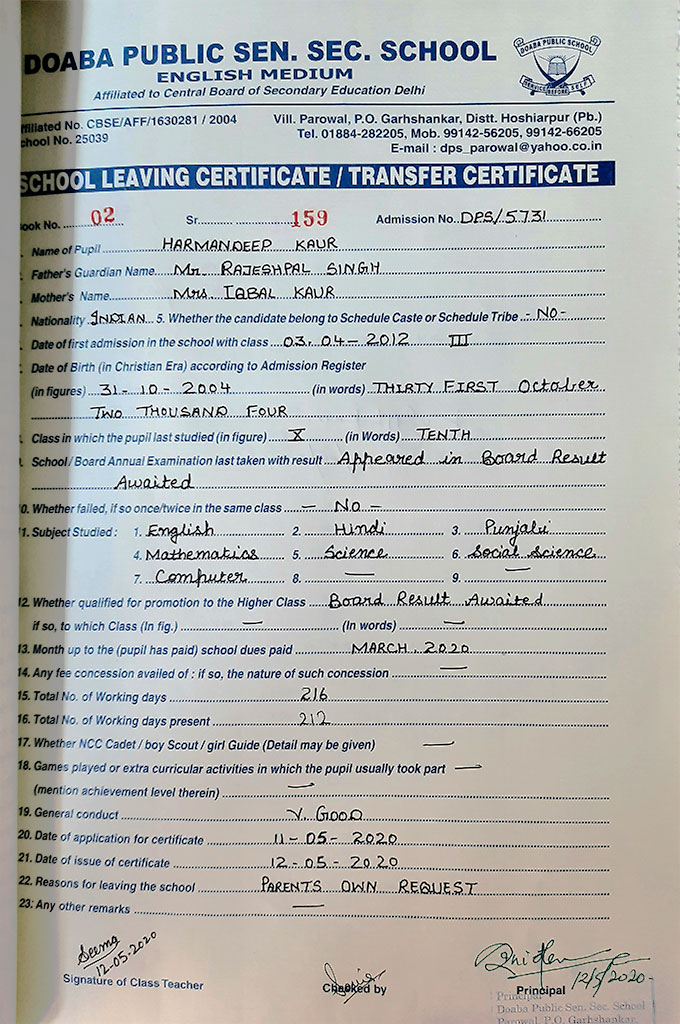 DOABA PUBLIC SEN. SEC. SCHOOL
ENGLISH MEDIUM
Affiliated to Central Board of Secondary Education Delhi
DOABA PUBLIC SCHOOL
SERVICE BEFORE SELF
ffiliated No. CBSE/AFF/1630281 / 2004 Vill. Parowal, P.O. Garhshankar, Distt. Hoshiarpur (Pb.)
chool No. 25039 Tel. 01884-282205, Mob. 99142-56205, 99142-66205
E-mail : dps_parowal@yahoo.co.in
SCHOOL LEAVING CERTIFICATE / TRANSFER CERTIFICATE
ook No. 02 Sr. 159 Admission No. DPS/5731
Name of Pupil HARMANDEEP KAUR
Father's Guardian Name Mr. RAJESHPAL SINGH
Mother's Name Mrs IQBAL KAUR
Nationality INDIAN 5. Whether the candidate belong to Schedule Caste or Schedule Tribe - NO -
Date of first admission in the school with class 03.04-2012 III
Date of Birth (in Christian Era) according to Admission Register
(in figures) 31-10-2004 (in words) THIRTY FIRST October
TWO THOUSAND FOUR
Class in which the pupil last studied (in figure) X (in Words) TENTH
School / Board Annual Examination last taken with result Appeared in Board Result
Awaited
0. Whether failed, if so once/twice in the same class - No -
1. Subject Studied : 1. English 2. Hindi 3. Punjabi
4. Mathematics 5. Science 6. Social Science
7. Computer 8. — 9. —
12. Whether qualified for promotion to the Higher Class Board Result Awaited
if so, to which Class (In fig.) — (In words) —
13. Month up to the (pupil has paid) school dues paid MARCH, 2020
14. Any fee concession availed of : if so, the nature of such concession —
15. Total No. of Working days 216
16. Total No. of Working days present 212
17. Whether NCC Cadet / boy Scout / girl Guide (Detail may be given) —
18. Games played or extra curricular activities in which the pupil usually took part —
(mention achievement level therein) —
19. General conduct V. GOOD
20. Date of application for certificate 11-05-2020
21. Date of issue of certificate 12-05-2020
22. Reasons for leaving the school PARENTS OWN REQUEST
23. Any other remarks —
Seema
12-05-2020 12/5/2020-
Signature of Class Teacher Checked by Principal
Principal
Doaba Public Sen. Sec. School
Parowal, P.O. Garhshankar,